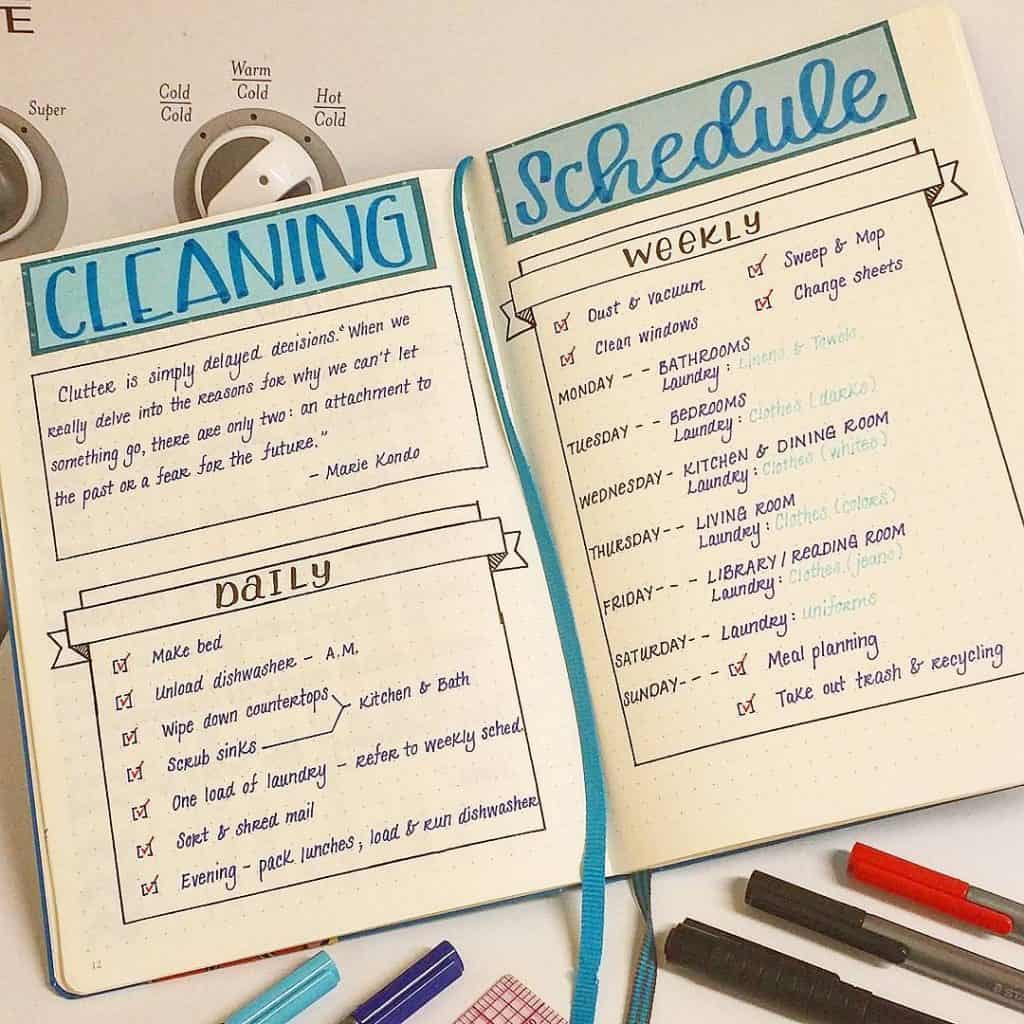 E
Super
Cold
Cold
Warm
Cold
Hot
Cold
CLEANING
Clutter is simply delayed decisions." When we
really delve into the reasons for why we can't let
something go, there are only two: an attachment to
the past or a fear for the future."
- Marie Kondo
DAILY
Make bed
Unload dishwasher - A.M.
Wipe down countertops
Kitchen & Bath
Scrub sinks
One load of laundry - refer to weekly sched.
Sort & shred mail
Evening - pack lunches; load & run dishwasher
12
Schedule
WEEKLY
Dust & Vacuum
Sweep & Mop
Clean windows
Change sheets
MONDAY -- BATHROOMS
Laundry: Linens & Towels
TUESDAY -- BEDROOMS
Laundry: Clothes (darks)
WEDNESDAY - KITCHEN & DINING ROOM
Laundry: Clothes (whites)
THURSDAY -- LIVING ROOM
Laundry: Clothes (colors)
FRIDAY --- LIBRARY / READING ROOM
Laundry: Clothes (jeans)
SATURDAY -- Laundry: uniforms
SUNDAY --- Meal planning
Take out trash & recycling